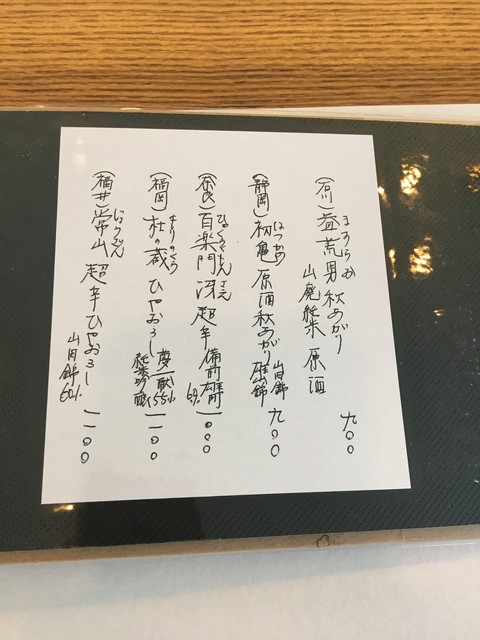 (石川)益荒男 秋あがり
ますらお
山廃純米 原酒
九〇〇
(静岡)初亀 原酒秋あがり
はつかめ
山田錦
雄山錦
九〇〇
(奈良)百楽門 冴 超辛
ひゃくらくもん さえ
備前雄町
一〇〇〇
(福岡)杜の蔵 ひやおろし
もりのくら
夢一献55%
純米吟醸
一一〇〇
(福井)常山 超辛ひやおろし
じょうざん
山田錦
60%
一一〇〇